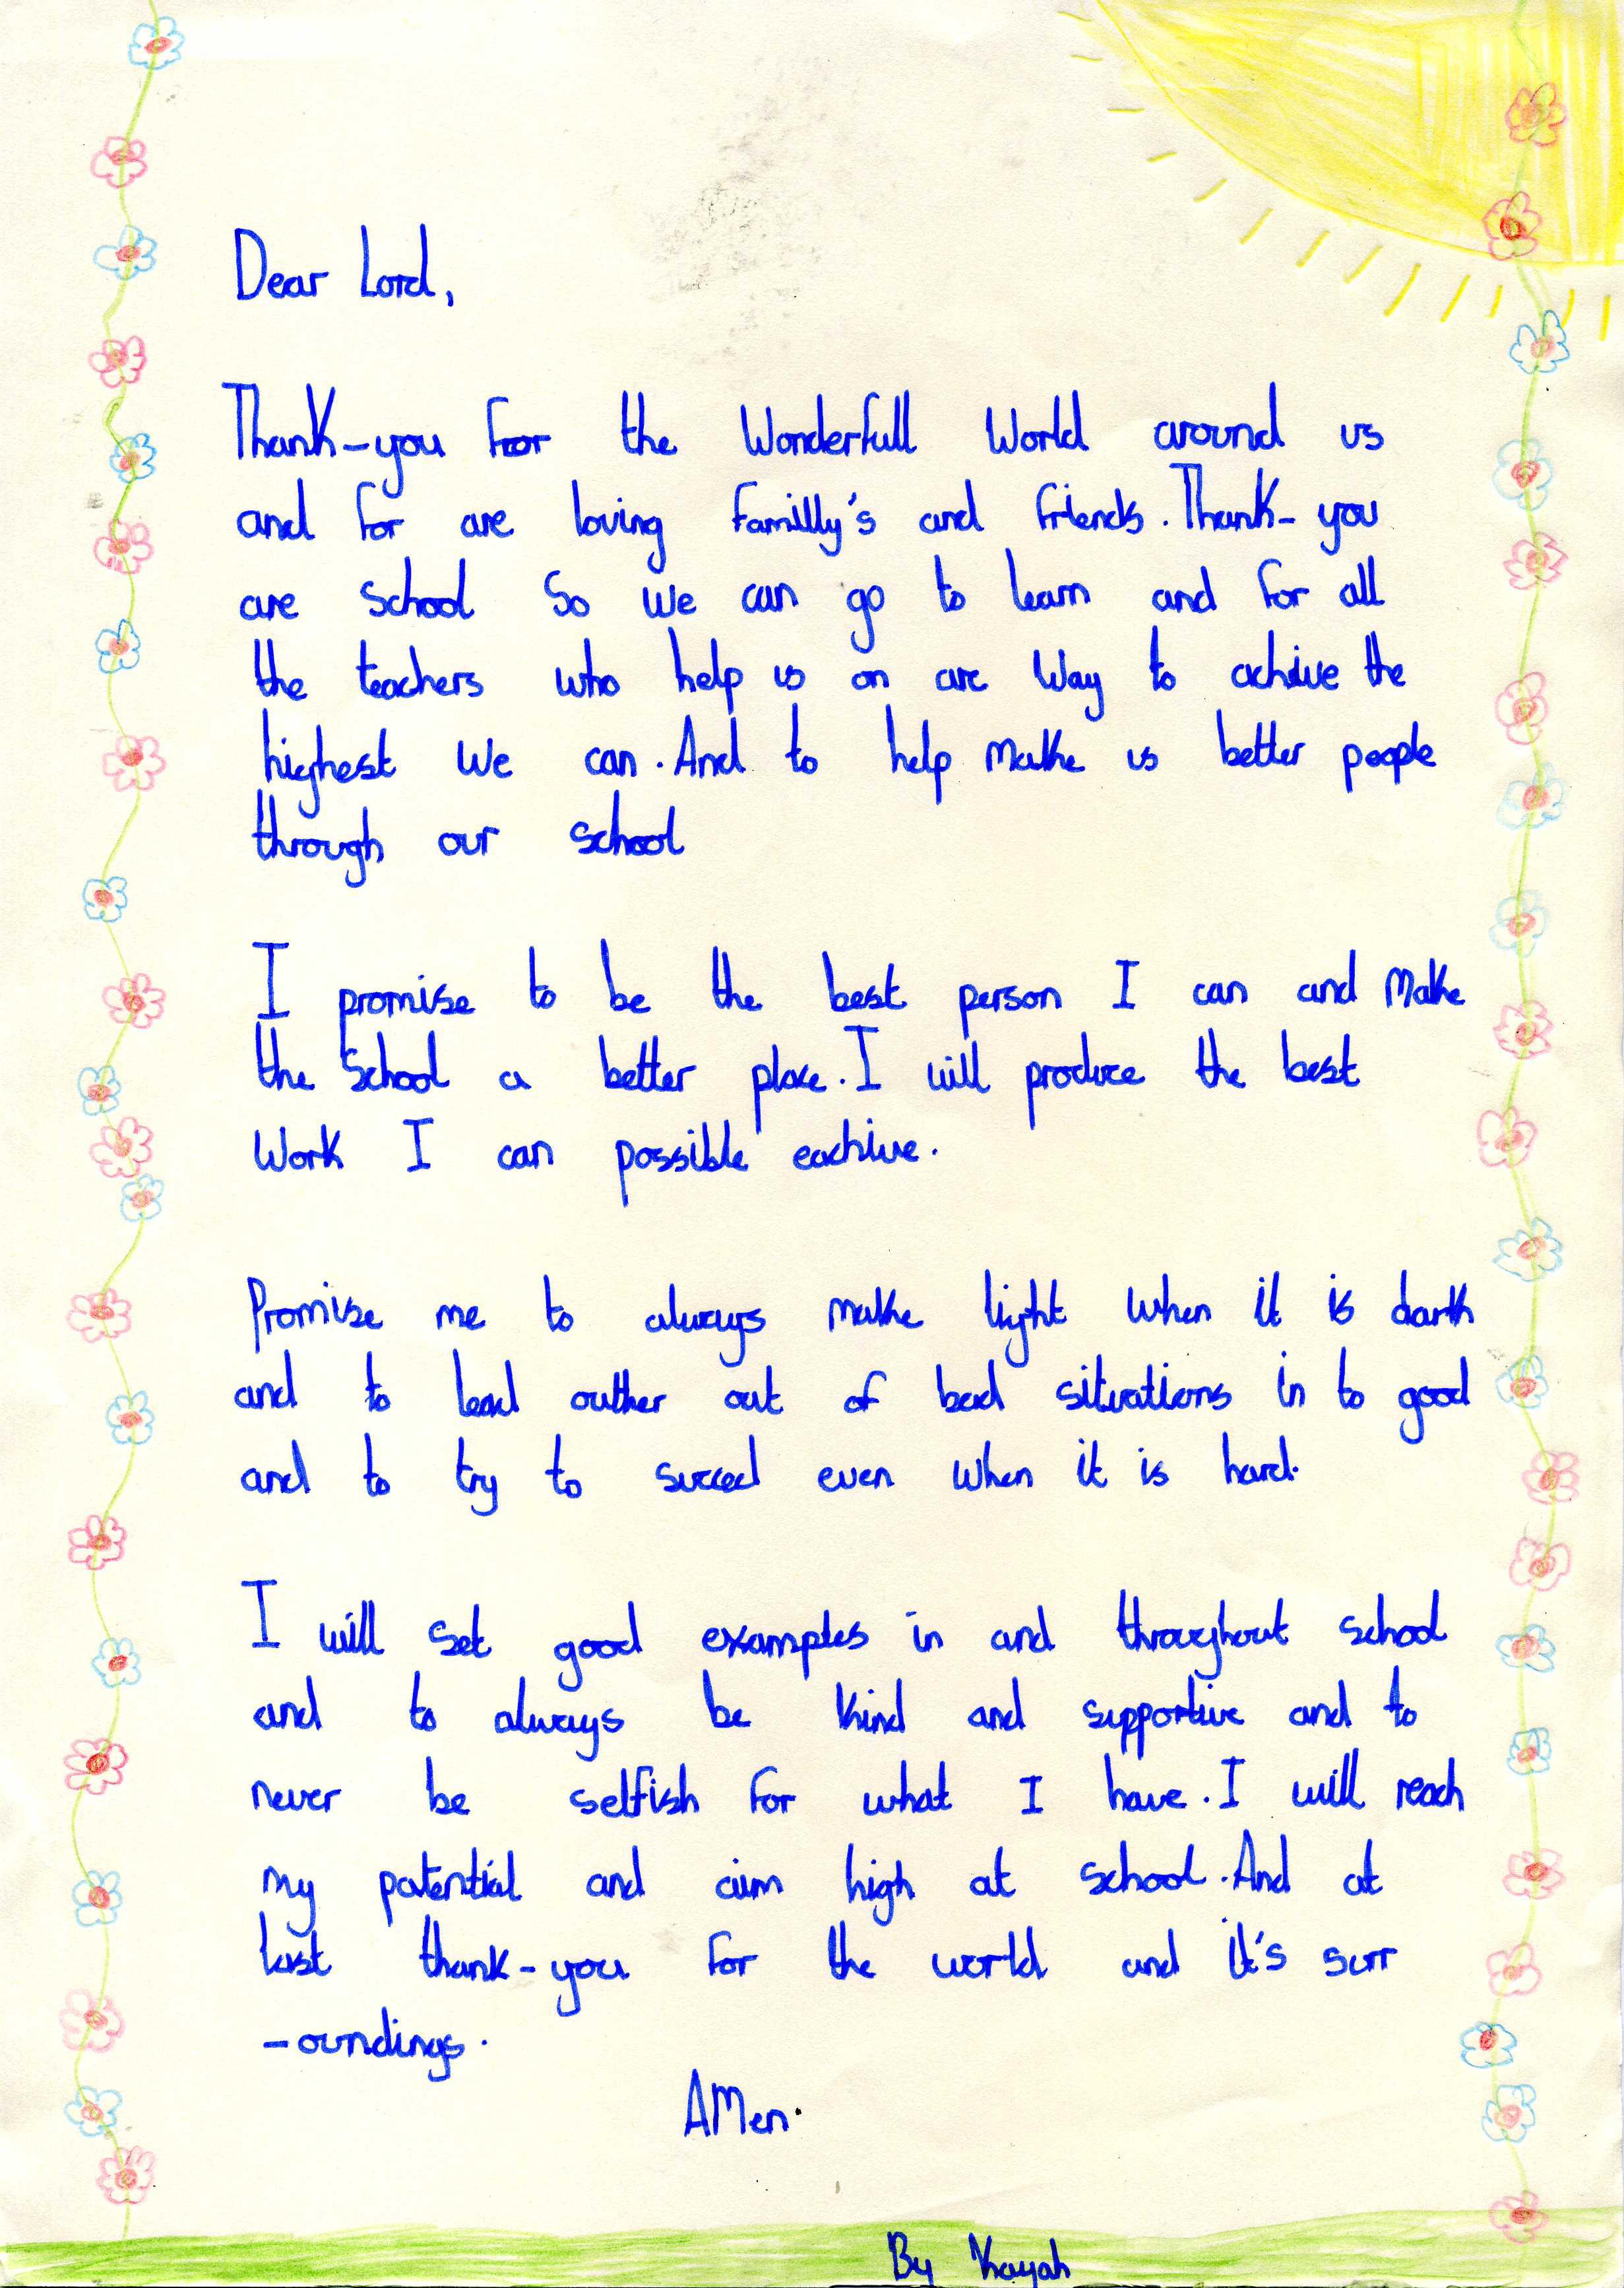 Dear Lord,
Thank-you for the Wonderfull World around us
and for are loving familly's and friends. Thank-you
are school So We can go to learn and for all
the teachers who help us on are Way to achive the
highest We can. And to help make us better people
through our school
I promise to be the best person I can and Make
the School a better place. I will produce the best
Work I can possible eachive.
Promise me to always make light when it is dark
and to lead outher out of bad situations in to good
and to try to succed even when it is hard.
I will set good examples in and throughout school
and to always be kind and supportive and to
never be selfish for what I have. I will reach
my potential and aim high at school. And at
last thank-you for the world and it's surr
-oundings.
AMen.
By Kayah